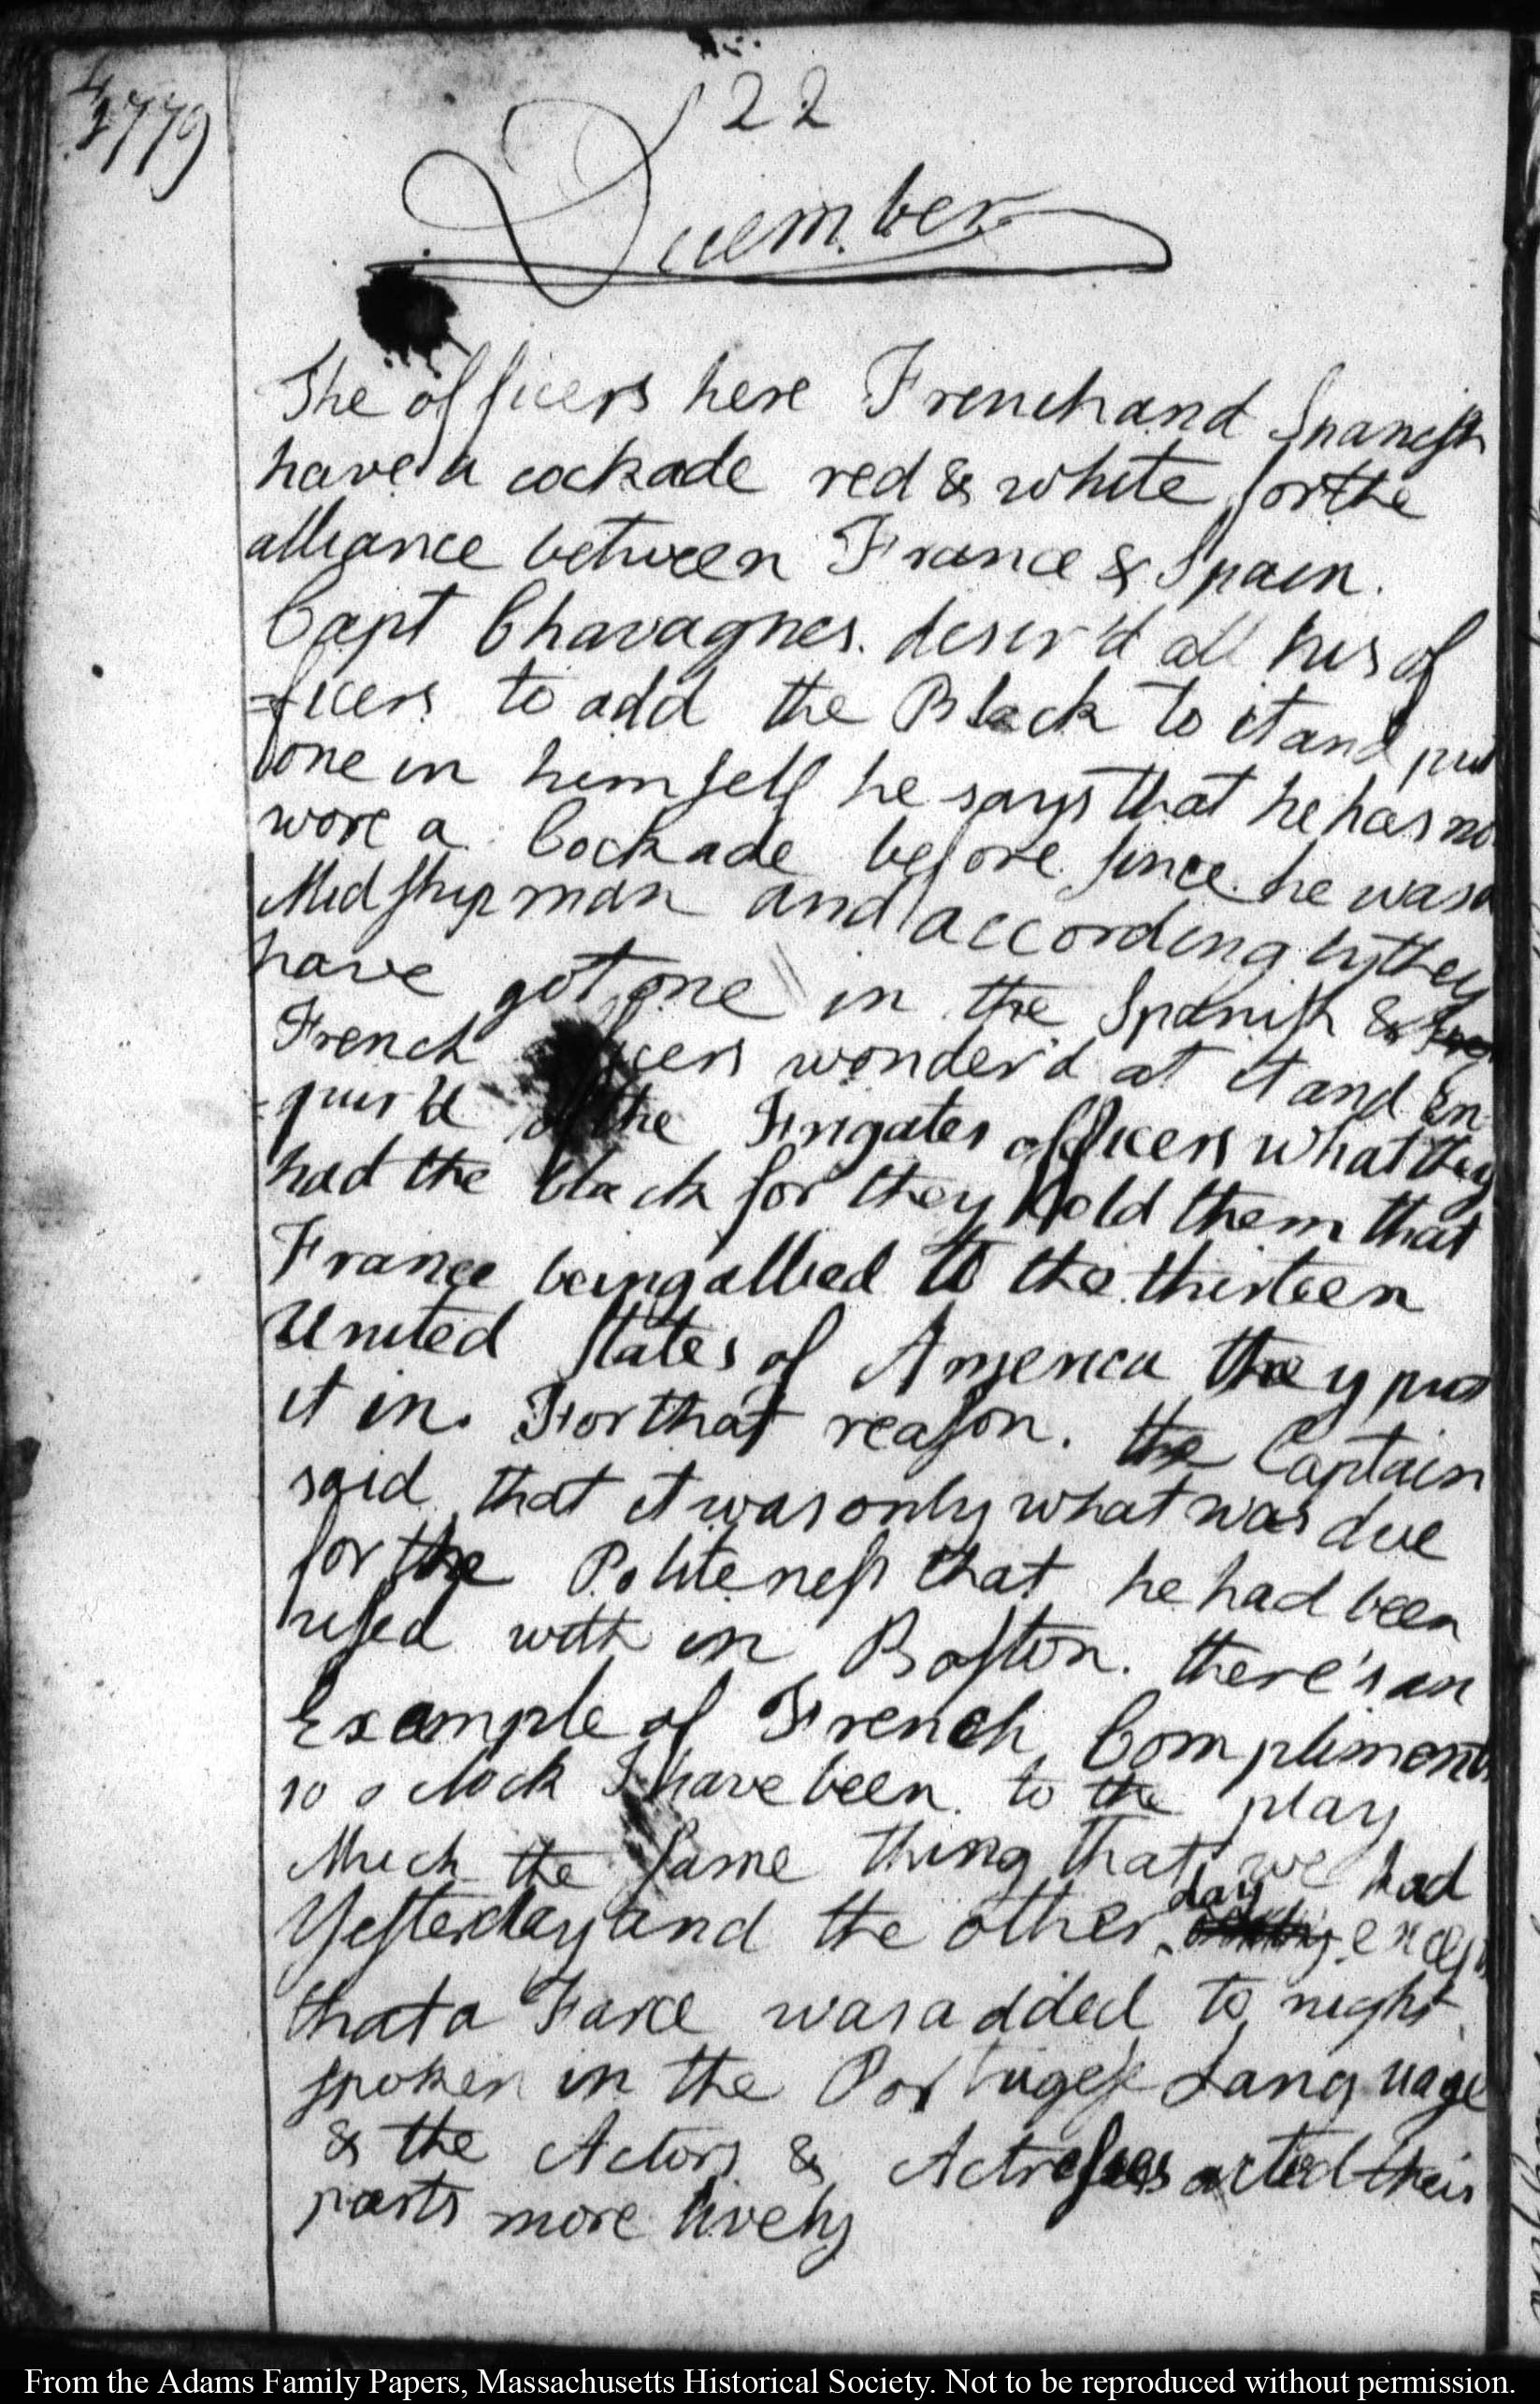 1779
22
December
The officers here French and Spanish
have a cockade red & white for the
alliance between France & Spain.
Capt Chavagnes. desir'd all his of
=ficers to add the Black to it and put
one in himself he says that he has not
wore a Cockade before since he was a
Midshipman and accordingly they
have got one in the Spanish &
French officers wonder'd at it and En
=quir'd of the Frigates officers what they
had the black for they told them that
France being allied to the thirteen
United States of America they put
it in. For that reason. the Captain
said that it was only what was due
for the Politeness that he had been
used with in Boston. there's an
Example of French Compliments
10 o clock I have been to the play
Much the same thing that we had
day
Yesterday and the other except
that a Farce was added to night
spoken in the Portugese Language
& the Actors & Actresses acted their
parts more lively
From the Adams Family Papers, Massachusetts Historical Society. Not to be reproduced without permission.